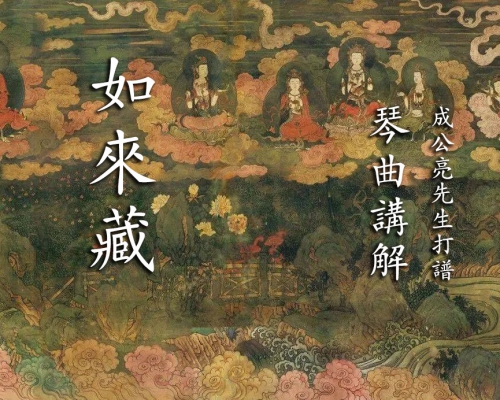 如來藏
琴曲講解
成公亮先生打譜